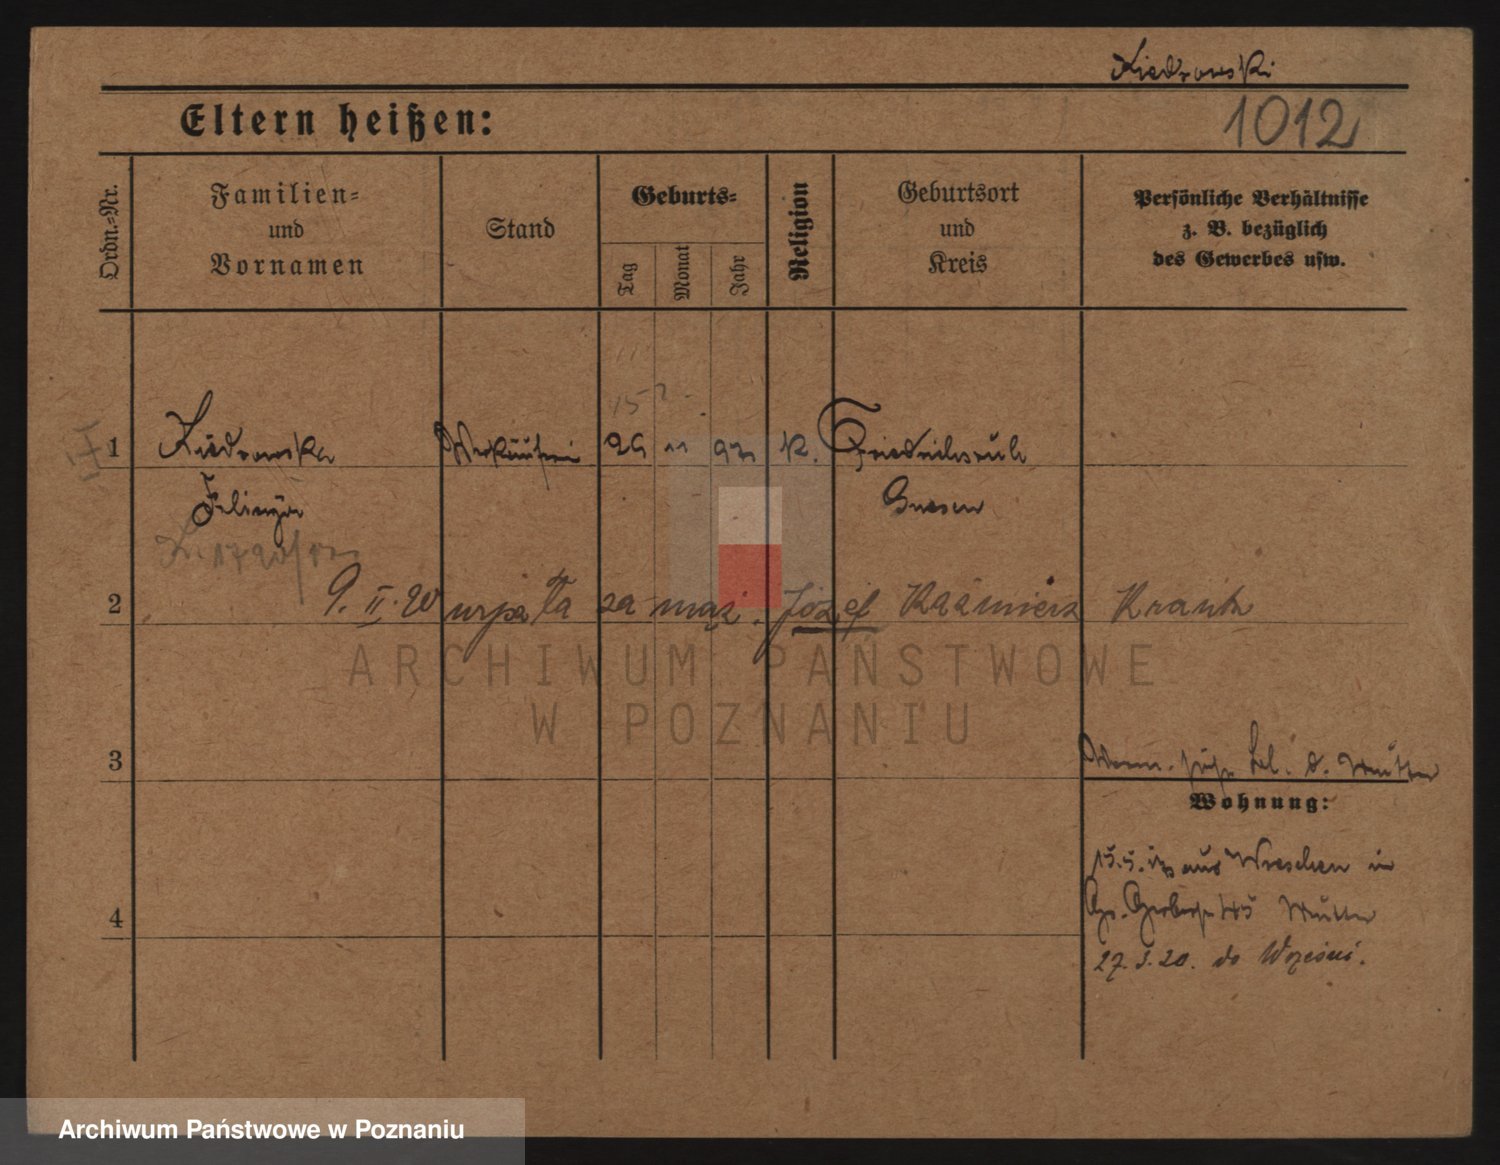 Kiedrowski
1012
Eltern heißen:
Ordn.-Nr.
Familien-
und
Vornamen
Stand
Geburts-
Tag
Monat
Jahr
Religion
Geburtsort
und
Kreis
Persönliche Verhältnisse
z. B. bezüglich
des Gewerbes usw.
1 Kiedrowska Verkäuferin 29 11 97 K. Friedrichsruh
Gnesen
2 9. II. 20 wyszła za mąż. Józef Kaźmierz
ARCHIWUM PAŃSTWOWE
W POZNANIU
3
Wohnung:
15.5. aus Wreschen in
4 Mutter
27.3.20. do Wrześni.
Archiwum Państwowe w Poznaniu